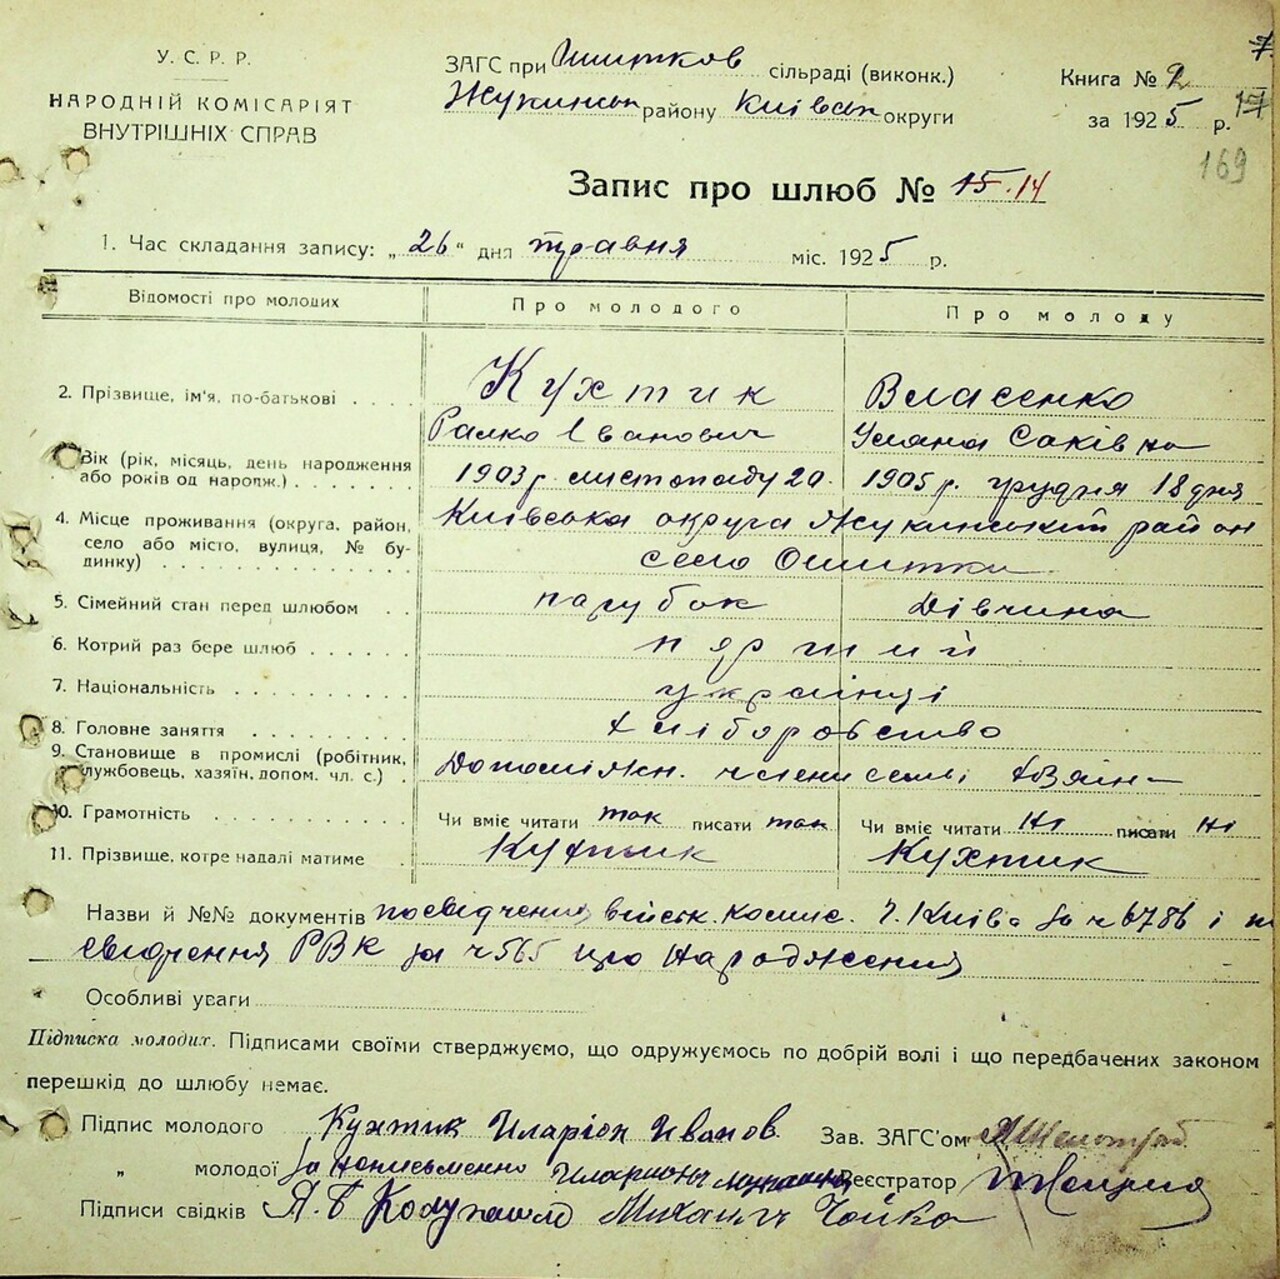 У. С. Р. Р.
НАРОДНІЙ КОМІСАРІЯТ
ВНУТРІШНІХ СПРАВ
ЗАГС при Ошитков сільраді (виконк.)
Жукинськ району Київськ округи
Книга № 2
за 1925 р.
7
17
169
Запис про шлюб № 15. 14
1. Час складання запису: „26“ дня травня міс. 1925 р.
Відомості про молодих
Про молодого
Про молоду
2. Прізвище, ім'я, по-батькові . . . .
Кухтик
Власенко
Ралко Іванович
Уляна Саківна
Вік (рік, місяць, день народження або років од народж.) . . . . . . .
1903 р. листопаду 20.
1905 р. грудня 18 дня
4. Місце проживання (округа, район, село або місто, вулиця, № будинку) . . . . . . . . . . . .
Київська округа Жукинський район
село Ошитки
5. Сімейний стан перед шлюбом . .
парубок
Дівчина
6. Котрий раз бере шлюб . . . . . .
пярший
7. Національність . . . . . . . . . .
українці
8. Головне заняття . . . . . . . . .
хліборобство
9. Становище в промислі (робітник, службовець, хазяїн, допом. чл. с.) .
члени семі
10. Грамотність . . . . . . . . . . .
Чи вміє читати так писати так
Чи вміє читати ні писати ні
11. Прізвище, котре надалі матиме .
Кухтик
Кухтик
Назви й №№ документів посвідчення військ. коміс. Київа за ч 6786 і
свідчення РВК за ч 565 про народження
Особливі уваги
Підписка молодих. Підписами своїми стверджуємо, що одружуємось по добрій волі і що передбачених законом
перешкід до шлюбу немає.
Підпис молодого Кухтик Иларіон Иванов. Зав. ЗАГС'ом
„ молодої за Неписьменно Реєстратор
Підписи свідків Михаилъ Чайка